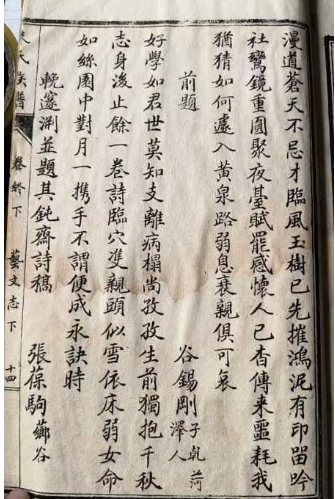 漫道蒼天不忌才臨風玉樹已先摧鴻泥有印留吟
社鸞鏡重圓聚夜臺賦罷感懷人已杳傳来噩耗我
猶猜如何遽入黄泉路弱息衰親俱可哀
前題
谷錫剛子乾荷澤人
好學如君世莫知支離病榻尚孜孜生前獨抱千秋
志身後止餘一卷詩臨穴雙親頭似雪依床弱女命
如絲園中對月一携手不謂便成永訣時
輓邃渊並題其鈍齋詩稿
張葆駒薌谷
氏族譜
卷終下
藝文志下
十四